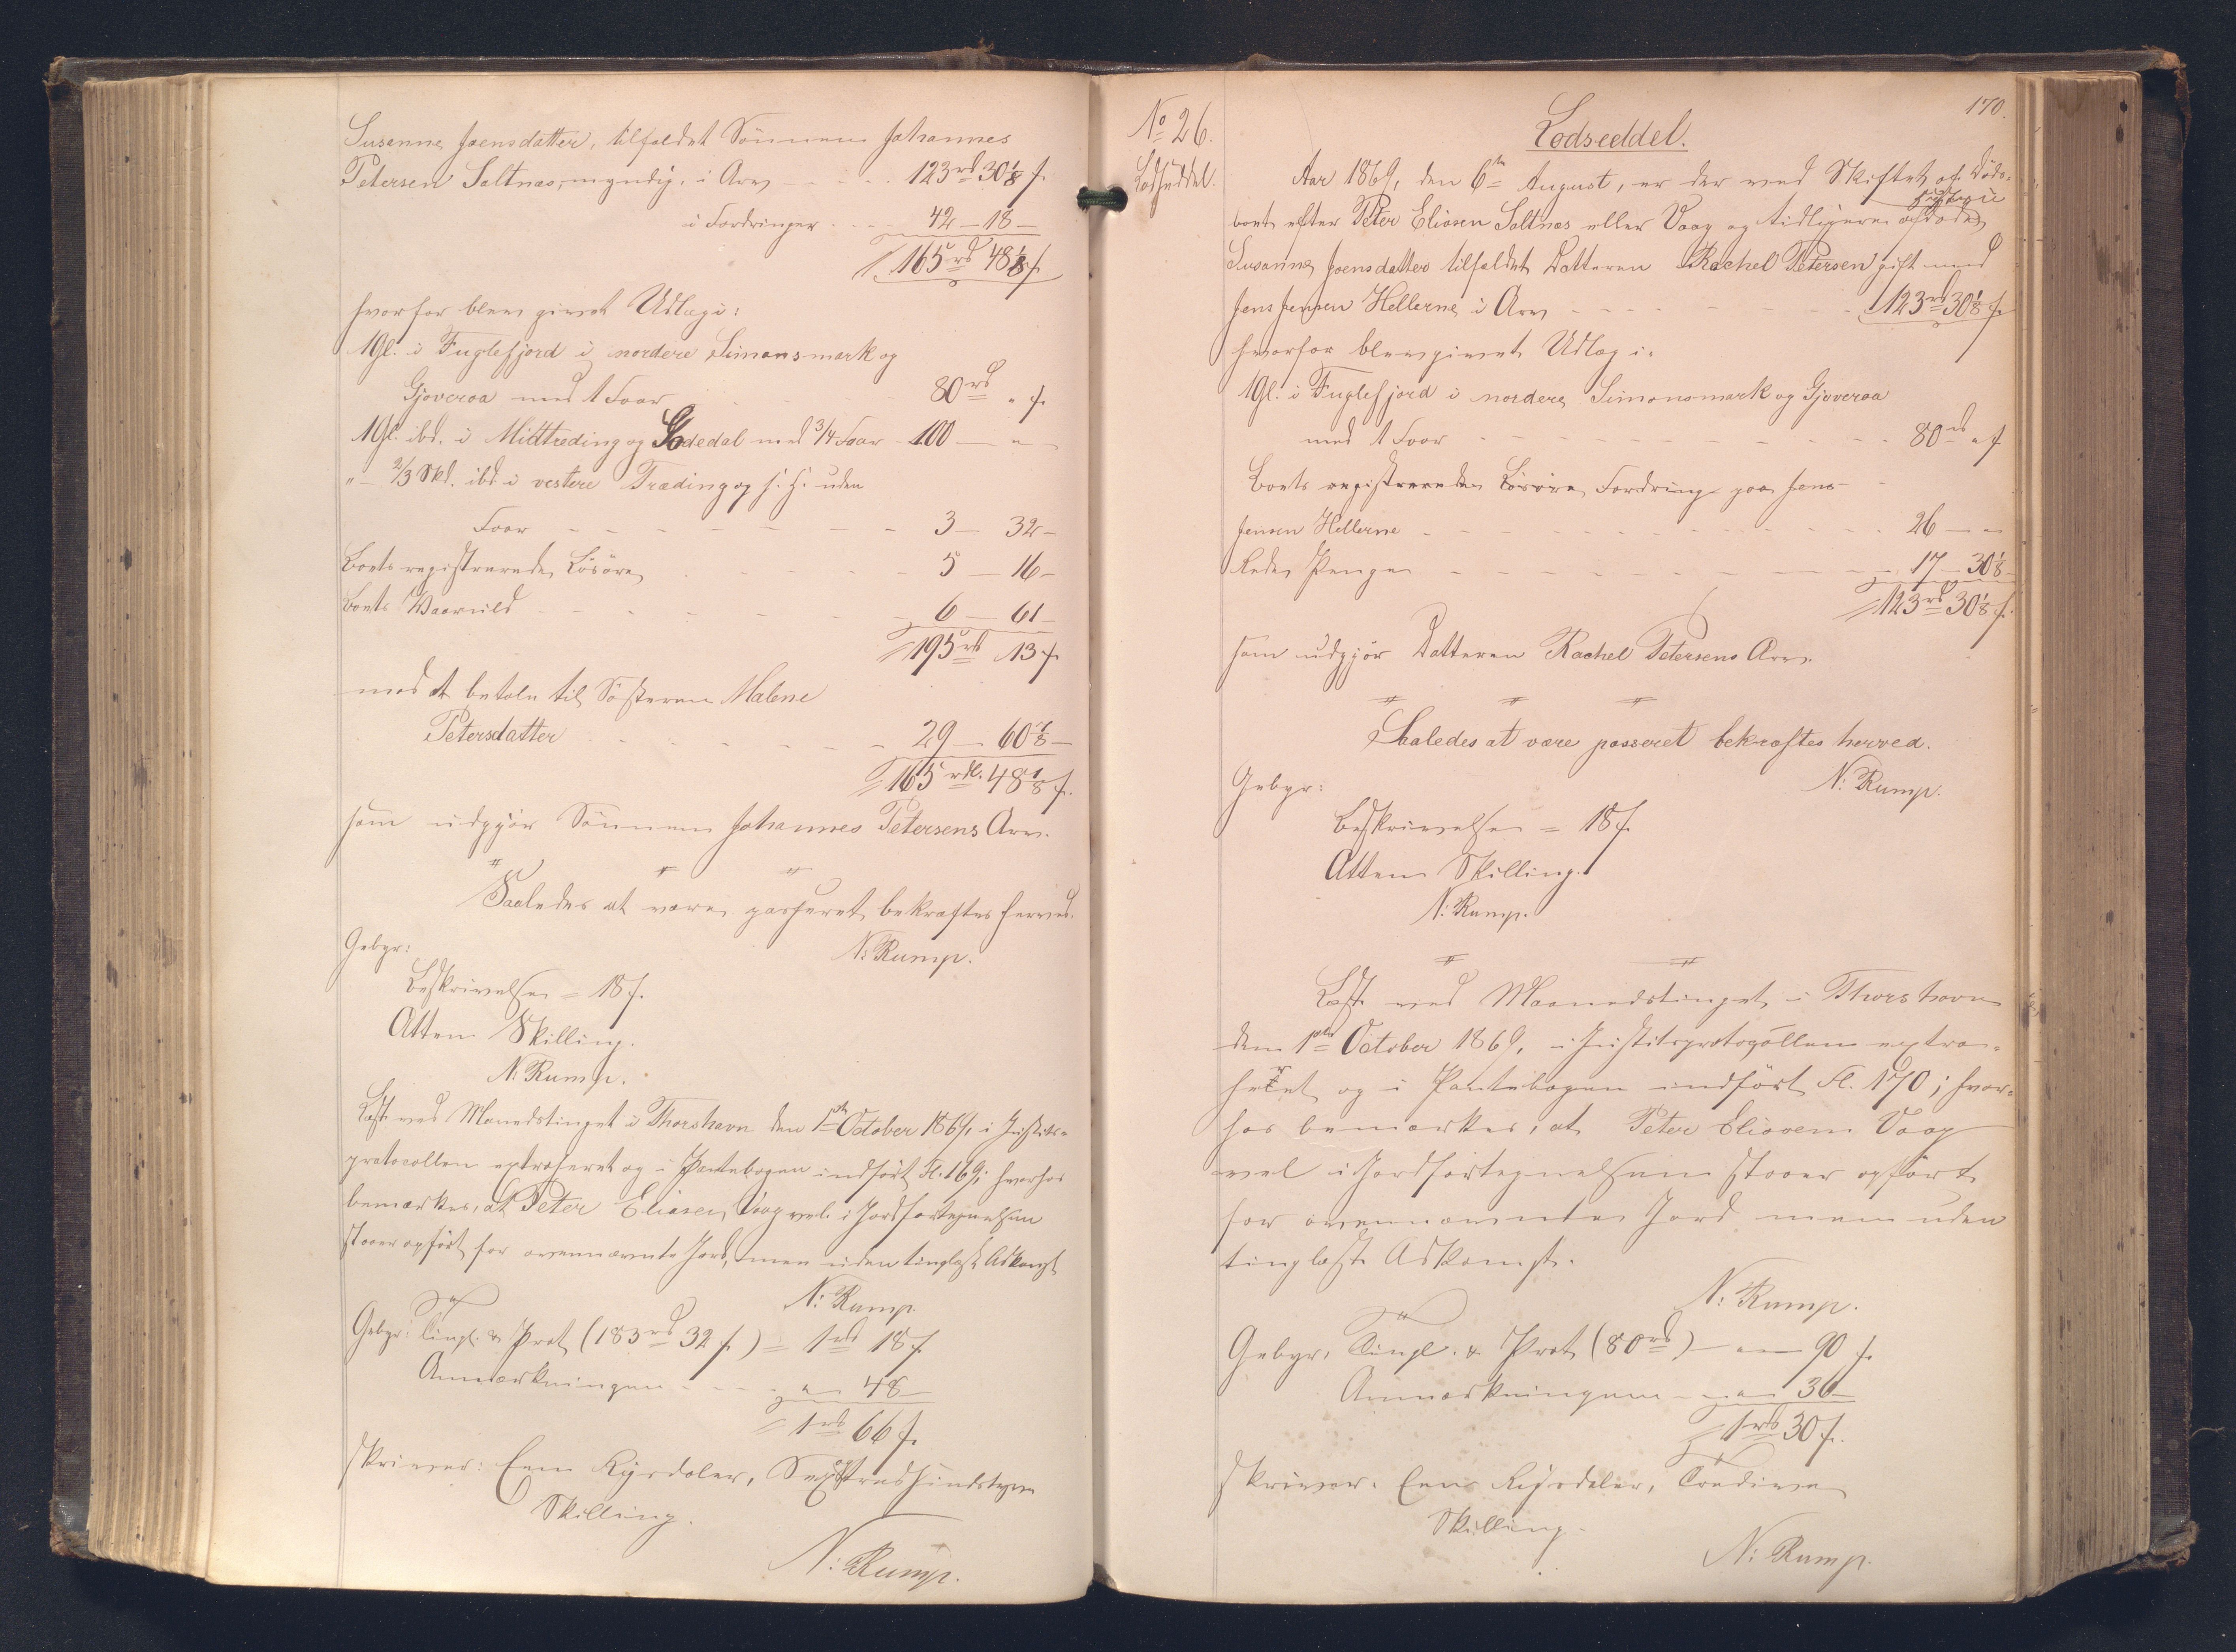 Susanne Joensdatter, tilfaldet Sønnen Johannes
Petersen Saltnæs, myndig, i Arv - - - 123 rd 30 1/8 ß
i Fordringer - - - 42 - 18 -
165 rd 48 1/8 ß
hvorfor blev givet Udlæg i:
1 Gl. i Fuglefjord i nordere Simonsmark og
Gjoveraa med 1 Foer 80 rd " ß
1 Gl. ibd. i Midttræding og Godedal med 3/4 Foer - 100 - " -
" - 2/3 Skd. ibd. i vestere Træding og s: H: uden
Foer - - - - - 3 - 32 -
Boets registrerede Løsøre - - - 5 - 16 -
Boets Vaaruld - - - 6 - 61 -
195 rd 13 ß
mod at betale til Søsteren Malene
Petersdatter - - - 29 - 60 7/8 -
165 rdl. 48 1/8 ß.
som udgjør Sønnen Johannes Petersens Arv.
Saaledes at være passeret bekræftes herved.
N: Rump.
Gebyr:
Beskrivelsen = 18 ß.
Atten Skilling.
N: Rump.
Læst ved Maanedstinget i Thorshavn den 1ste October 1869, i Justits-
protocollen extraheret og i Pantebogen indført Fl. 169; hvorhos
bemærkes, at Peter Eliasen Vaag vel i Jordfortegnelsen
staaer opført for ovennævnte Jord, men uden tinglæst Adkomst
N: Rump.
Gebyr: Tingl. & Prot (183 rd 32 ß) = 1 rd 18 ß
Anmærkningen - - - " - 48 -
1 rd 66 ß.
skriver: Een Rigsdaler, Sextredsindstyve
Skilling.
N: Rump.
No 26.
Lodseddel.
170.
Lodseddel.
Aar 1869, den 6te August, er der ved Skiftet af Døds-
boet efter Peter Eliasen Saltnæs eller Vaag og tidligere afdøde
Hustrue
Susanne Joensdatter tilfaldet Datteren Rachel Petersen gift med
Jens Jensen Hellerne i Arv - - - 123 rd 30 1/8 ß
hvorfor blev givet Udlæg i:
1 Gl. i Fuglefjord i nordere Simonsmark og Gjoveraa
med 1 Foer - - - 80 rd " ß
Boets registrerede Løsøre, Fordring paa Jens
Jensen Hellerne - - - 26 - " -
Rede Penge - - - 17 - 30 1/8 -
123 rd 30 1/8 ß.
som udgjør Datteren Rachel Petersens Arv.
Saaledes at være passeret bekræftes herved.
N: Rump.
Gebyr:
Beskrivelsen = 18 ß.
Atten Skilling.
N: Rump.
Læst ved Maanedstinget i Thorshavn
den 1ste October 1869, i Justitsprotocollen extra-
heret og i Pantebogen indført Fl. 170; hvor-
hos bemærkes, at Peter Eliasen Vaag
vel i Jordfortegnelsen staaer opført
for ovennævnte Jord men uden
tinglæst Adkomst.
N: Rump.
Gebyr, Tingl. & Prot (80 rd) - " - 90 ß.
Anmærkningen - " - 36 -
1 rd 30 ß.
skriver: Een Rigsdaler, Tredive
Skilling.
N: Rump.